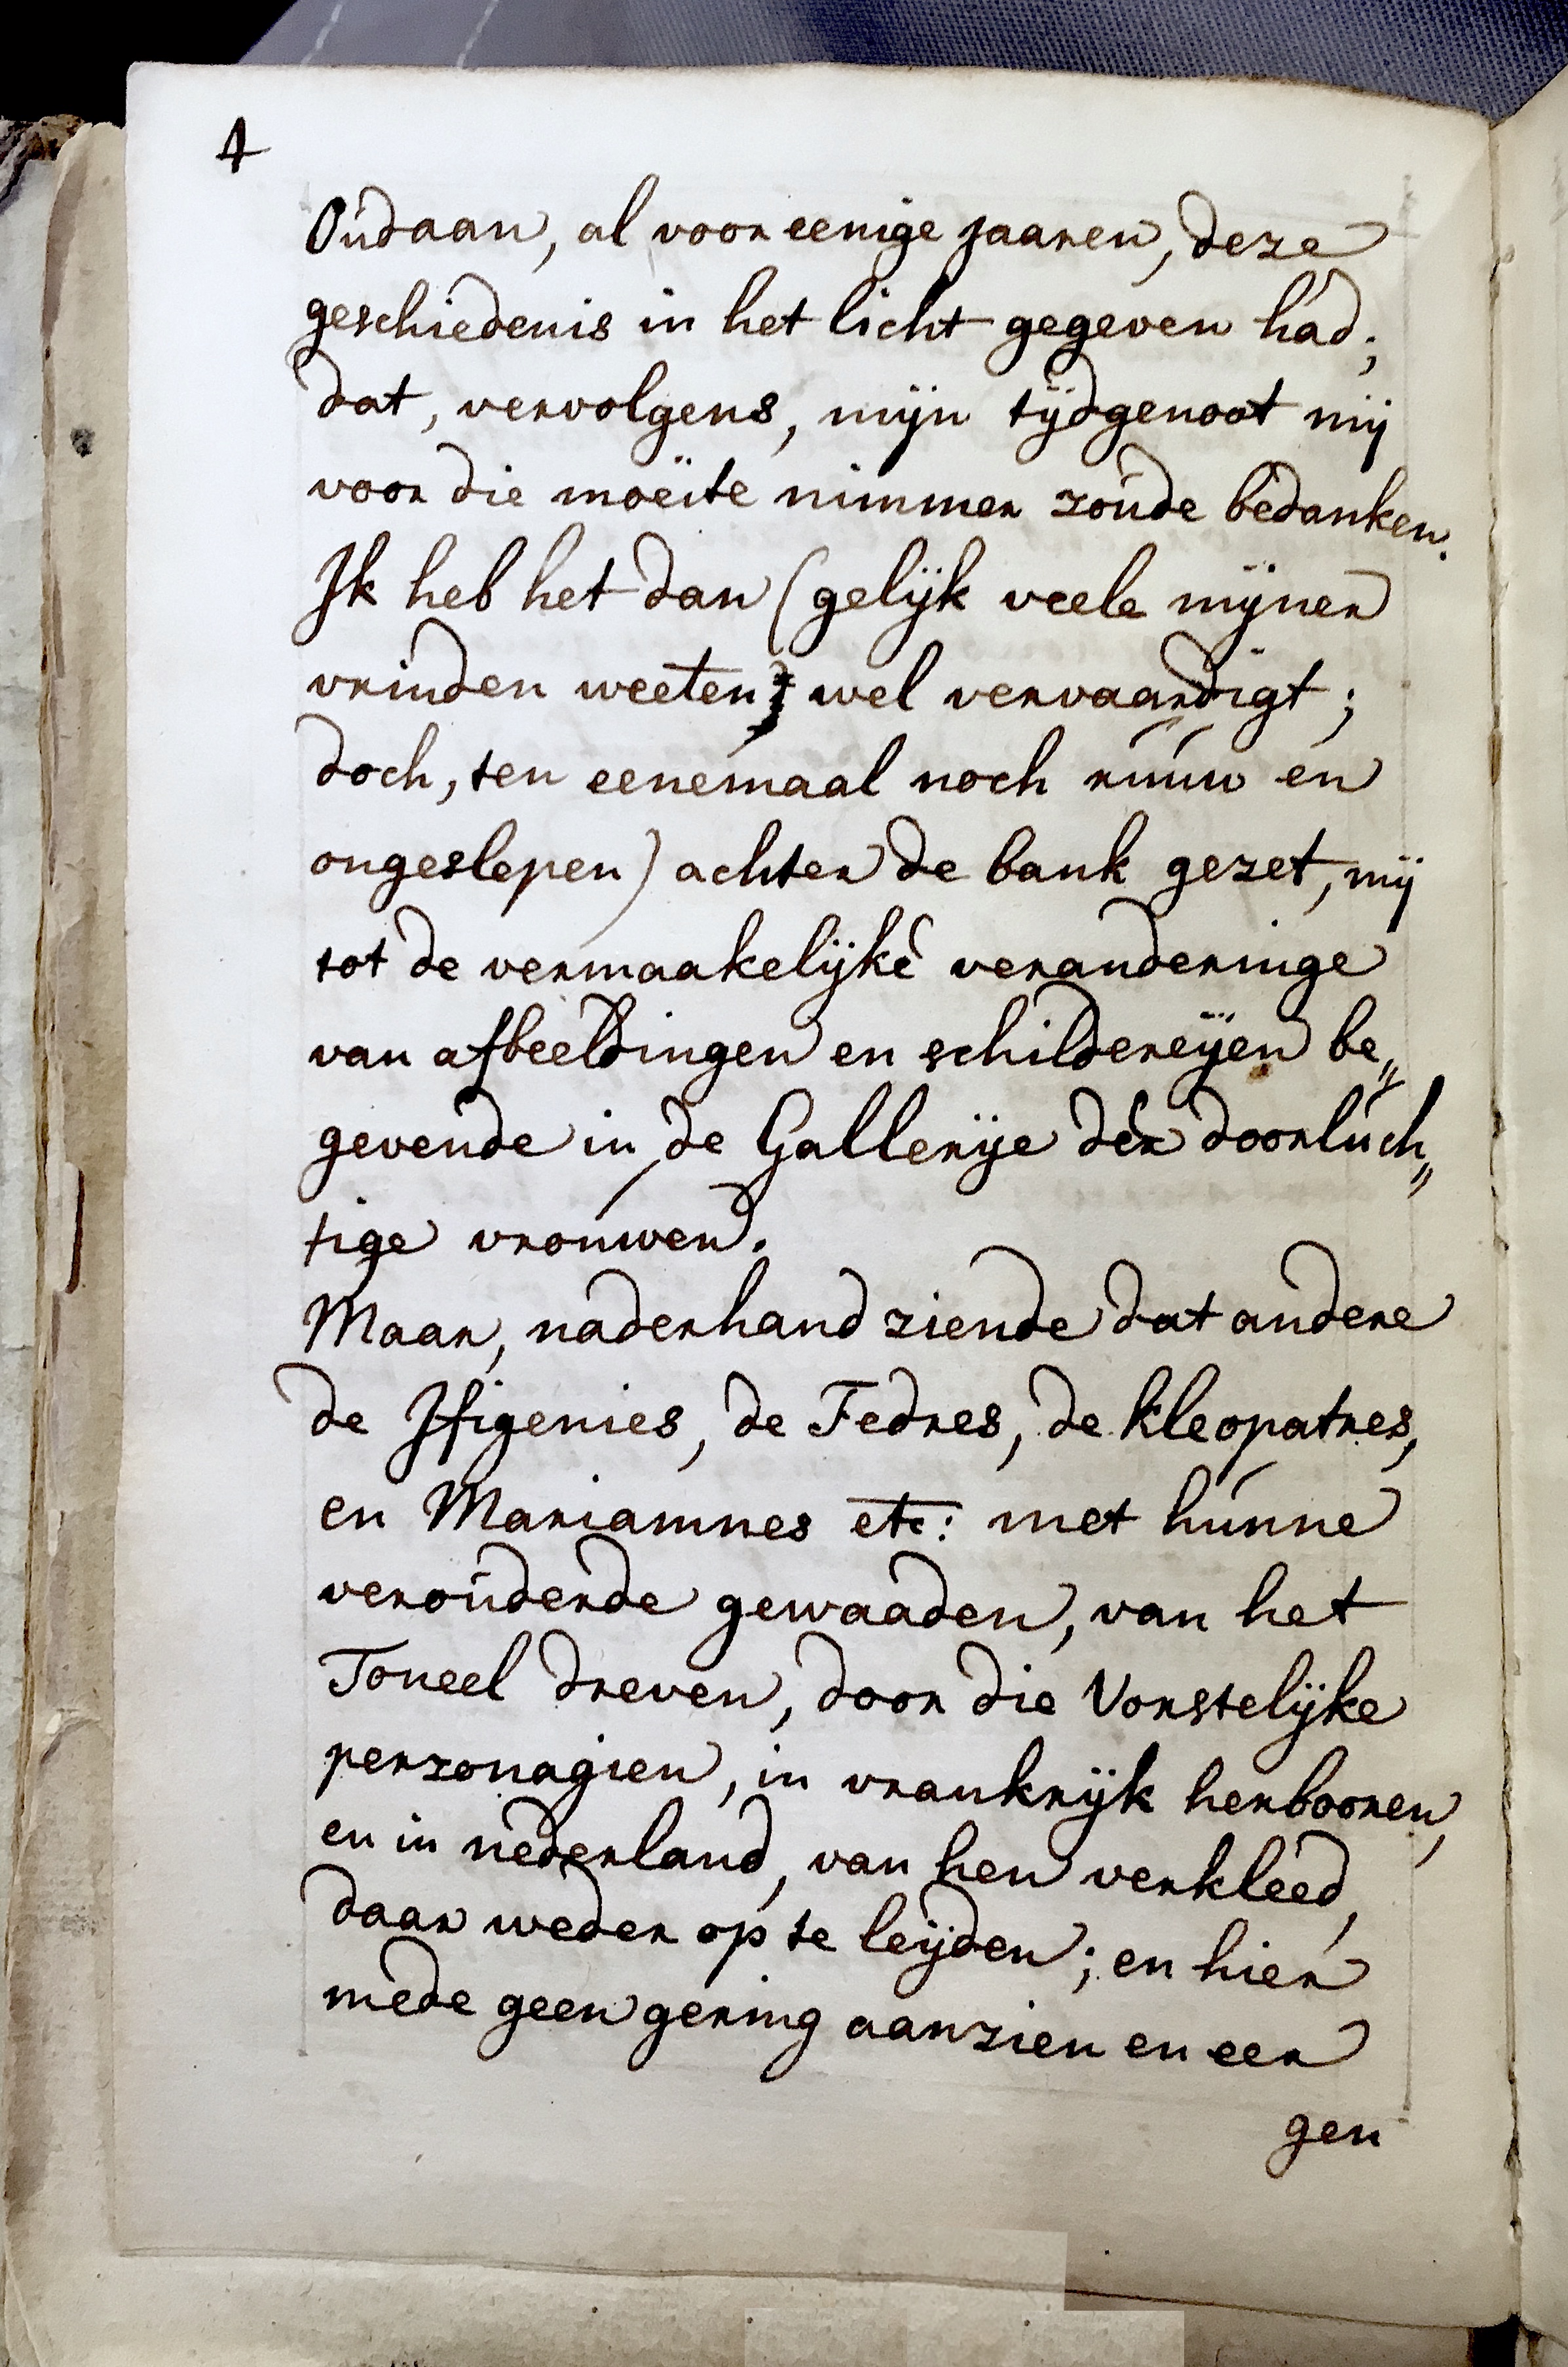 4
Oudaan, al voor eenige jaaren, deze
geschiedenis in het licht gegeven had;
dat, vervolgens, mijn tijdgenoot mij
voor die moeite nimmer zoude bedanken.
Ik heb het dan (gelijk veele mijner
vrinden weeten, wel vervaardigt;
doch, ten eenemaal noch ruuw en
ongeslepen) achter de bank gezet, mij
tot de vermaakelijke veranderinge
van afbeeldingen en schildereijen be„
gevende in de Gallerije der doorluch„
tige vrouwen.
Maar, naderhand ziende dat andere
de Ifigenies, de Fedres, de Kleopatres,
en Mariamnes etc: met hunne
verouderde gewaaden, van het
Toneel dreven, door die Vorstelijke
perzonagien, in vrankrijk herbooren,
en in nederland, van hen verkleed,
daar weder op te leijden; en hier
mede geen gering aanzien en eer
gen